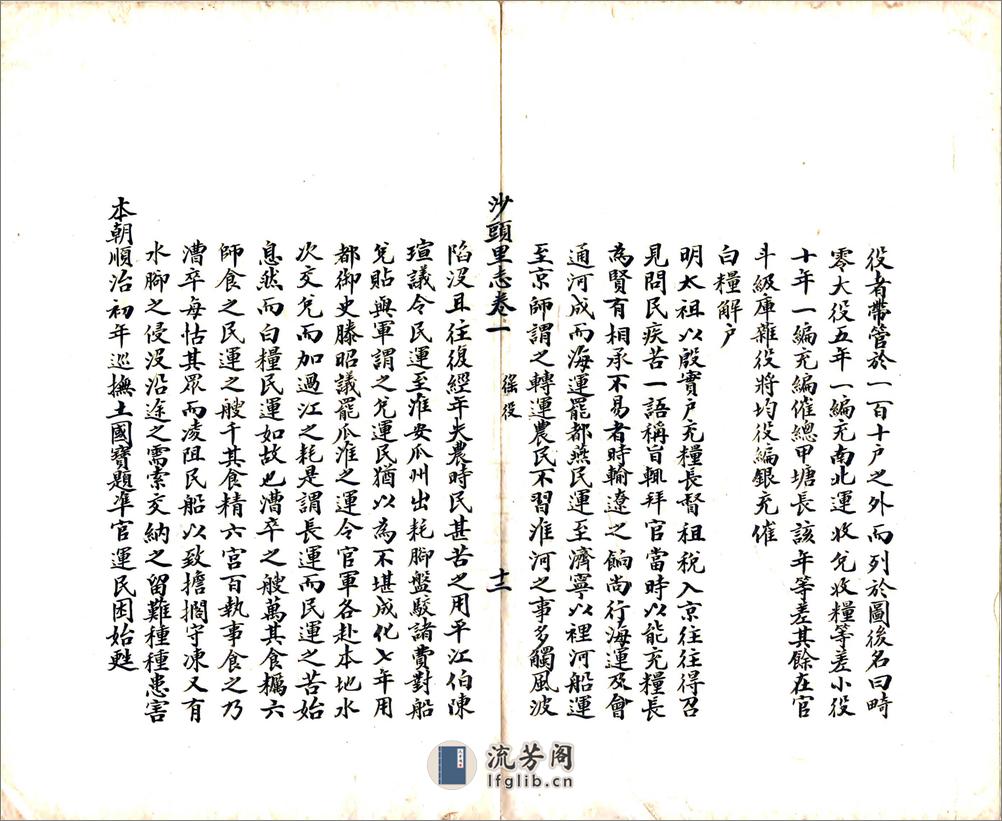 役者帶管於一百十戶之外而列於圖後名曰畸
零大役五年一編充南北運收兌收糧等差小役
十年一編充編催總甲塘長該年等差其餘在官
斗級庫雜役將均役編銀充催
白糧解戶
明太祖以殷實戶充糧長督租稅入京往往得召
見問民疾苦一語稱旨輒拜官當時以能充糧長
為賢有相承不易者時輸遼之餉尚行海運及會
通河成而海運罷都燕民運至濟寧以裡河船運
至京師謂之轉運農民不習淮河之事多觸風波
沙頭里志卷一
徭役
十一
陷沒且往復經年失農時民甚苦之用平江伯陳
瑄議令民運至淮安瓜州出耗腳盤駁諸費對船
兌貼與軍謂之兌運民猶以為不堪成化七年用
都御史滕昭議罷瓜淮之運令官軍各赴本地水
次交兌而加過江之耗是謂長運而民運之苦始
息然而白糧民運如故也漕卒之艘萬其食糲六
師食之民運之艘千其食精六宮百執事食之乃
漕卒每怙其眾而凌阻民船以致擔擱守凍又有
水腳之侵沒沿途之需索交納之留難種種患害
本朝順治初年巡撫土國寶題準官運民困始甦
流芳阁
lfglib.cn